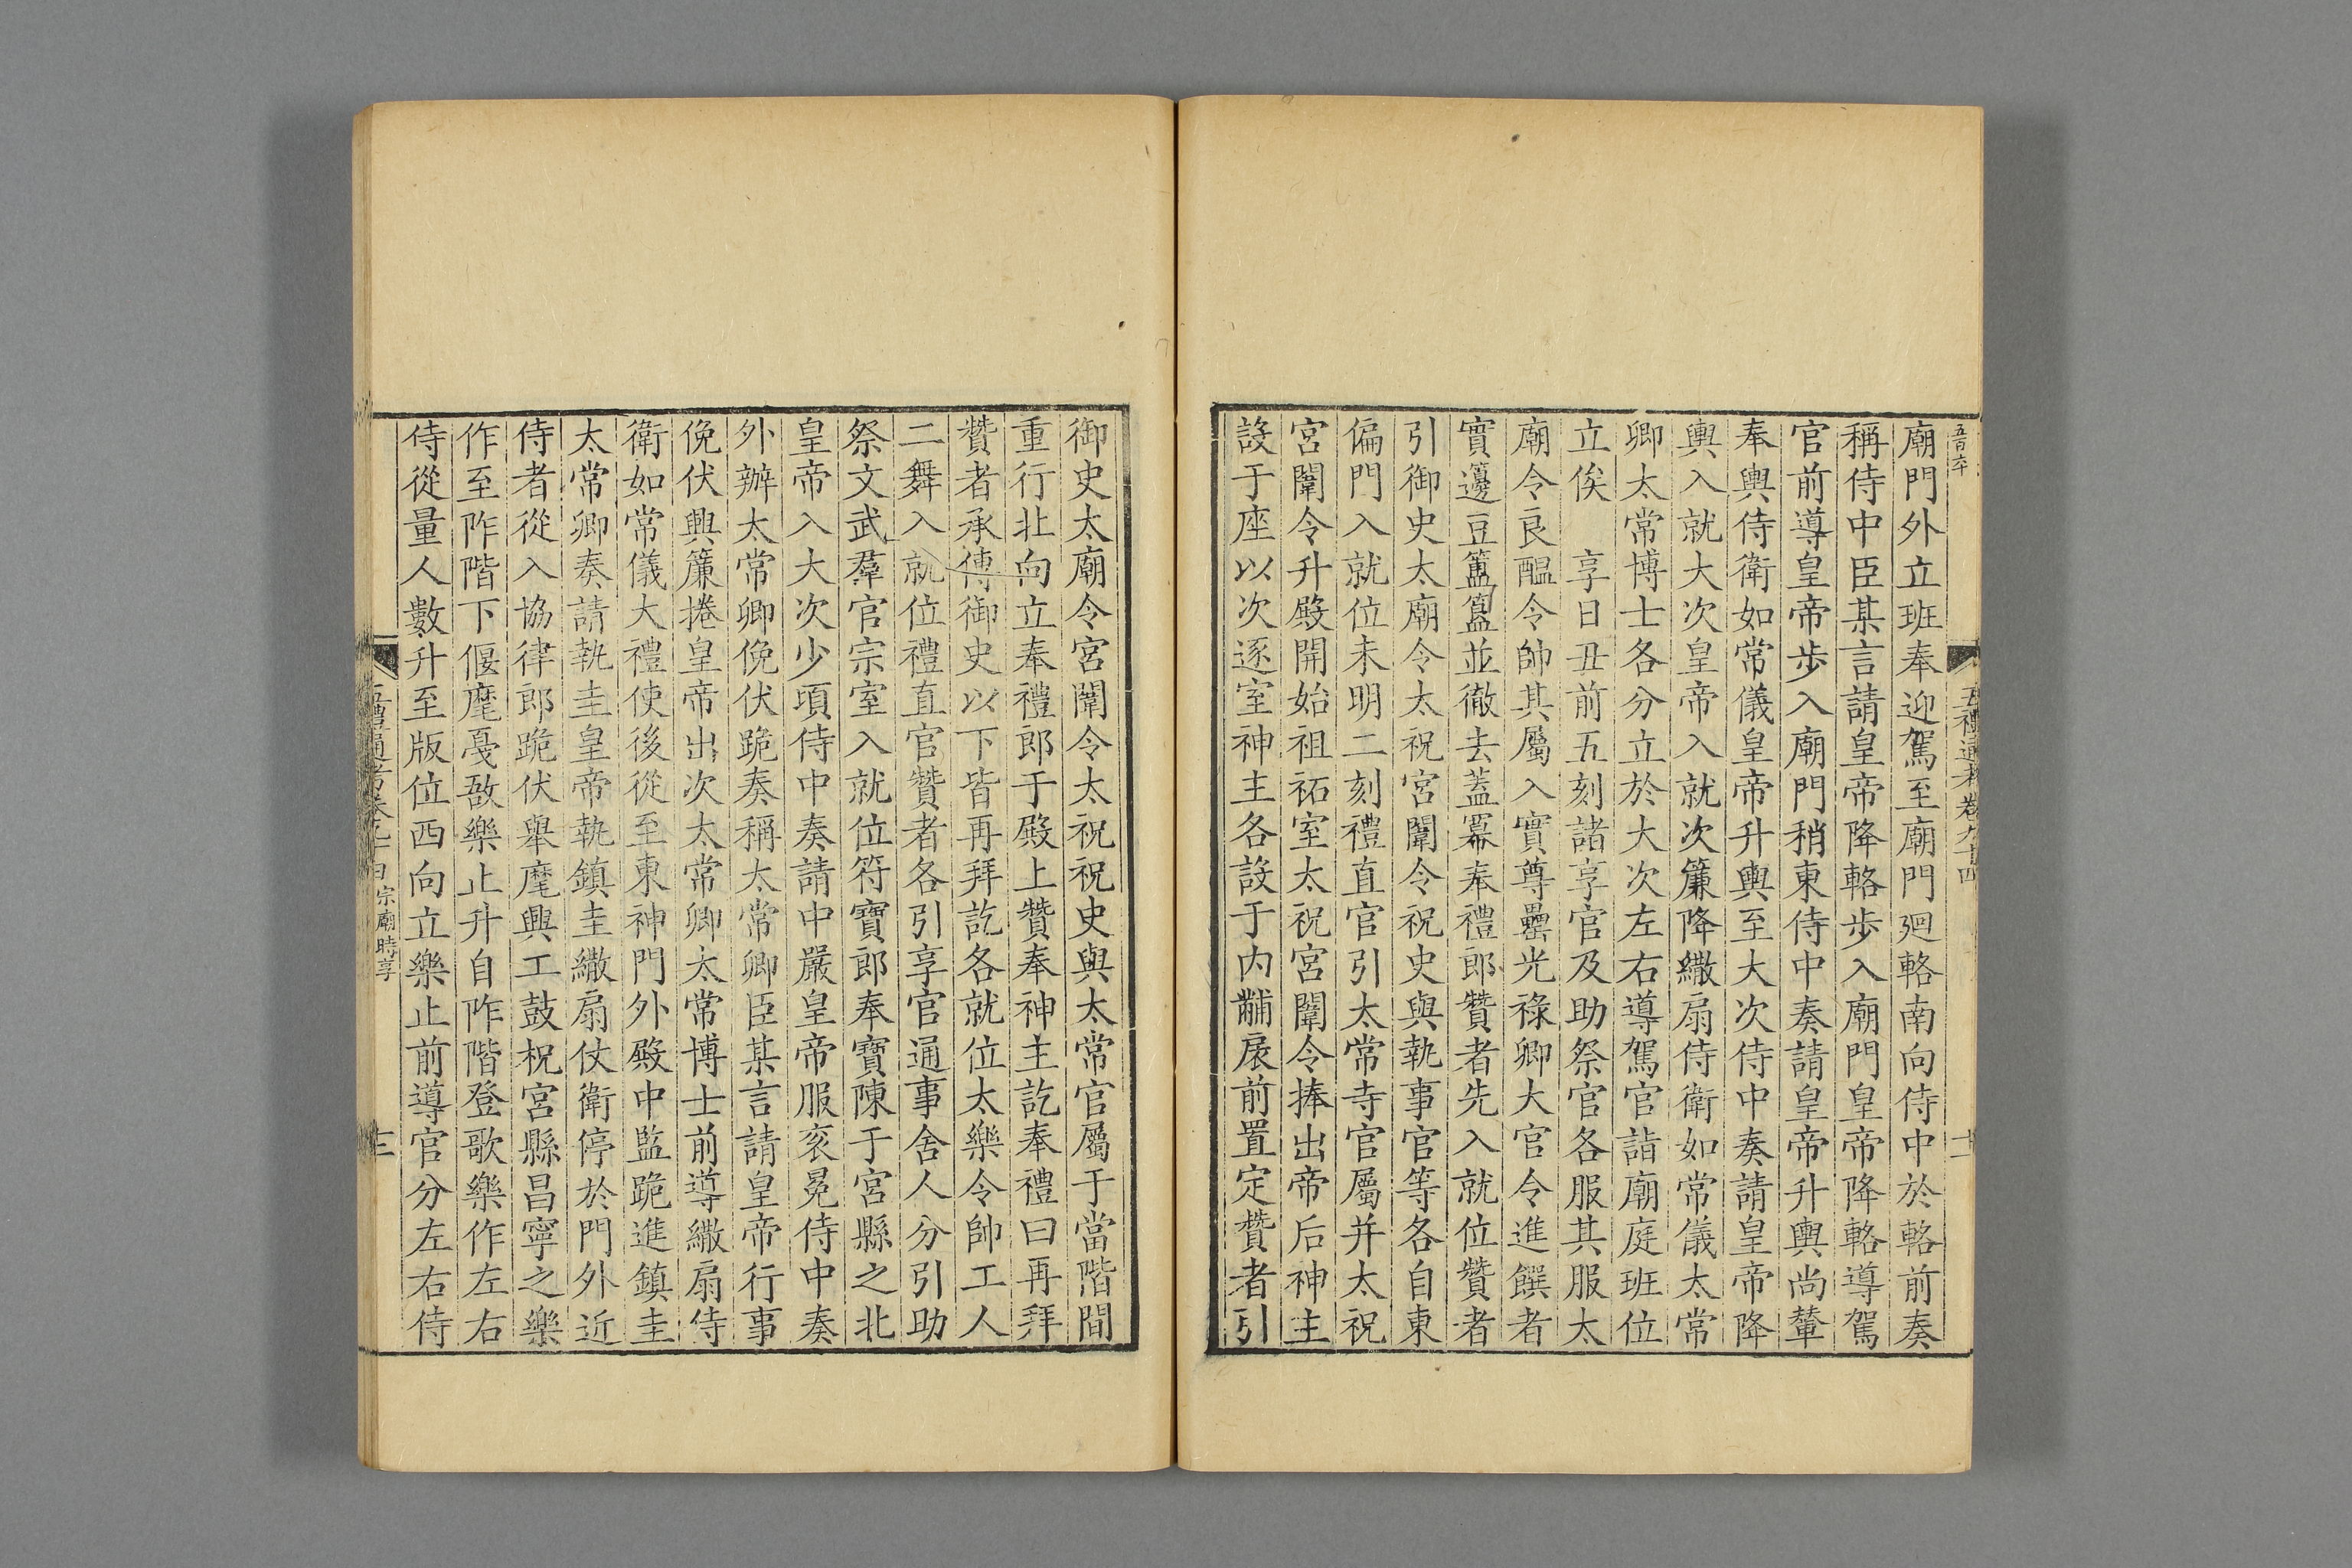 五百六十
五禮通考卷九十四
十二
廟門外立班奉迎駕至廟門廻輅南向侍中於輅前奏
稱侍中臣某言請皇帝降輅步入廟門皇帝降輅導駕
官前導皇帝步入廟門稍東侍中奏請皇帝升輿尚輦
奉輿侍衛如常儀皇帝升輿至大次侍中奏請皇帝降
輿入就大次皇帝入就次簾降繖扇侍衛如常儀太常
卿太常博士各分立於大次左右導駕官詣廟庭班位
立俟　享日丑前五刻諸享官及助祭官各服其服太
廟令良醞令帥其屬入實尊罍光祿卿大官令進饌者
實籩豆簠簋並徹去蓋冪奉禮郎贊者先入就位贊者
引御史太廟令太祝宮闈令祝史與執事官等各自東
偏門入就位未明二刻禮直官引太常寺官屬并太祝
宮闈令升殿開始祖祏室太祝宮闈令捧出帝后神主
設于座以次逐室神主各設于內黼扆前置定贊者引
御史太廟令宮闈令太祝祝史與太常官屬于當階間
重行北向立奉禮郎于殿上贊奉神主訖奉禮曰再拜
贊者承傳御史以下皆再拜訖各就位太樂令帥工人
二舞入就位禮直官贊者各引享官通事舍人分引助
祭文武羣官宗室入就位符寶郎奉寶陳于宮縣之北
皇帝入大次少頃侍中奏請中嚴皇帝服衮冕侍中奏
外辦太常卿俛伏跪奏稱太常卿臣某言請皇帝行事
俛伏興簾捲皇帝出次太常卿太常博士前導繖扇侍
衛如常儀大禮使後從至東神門外殿中監跪進鎮圭
太常卿奏請執圭皇帝執鎮圭繖扇仗衛停於門外近
侍者從入協律郎跪伏舉麾興工鼓柷宮縣昌寧之樂
作至阼階下偃麾戞敔樂止升自阼階登歌樂作左右
侍從量人數升至版位西向立樂止前導官分左右侍
五禮通考卷九十四 宗廟時享